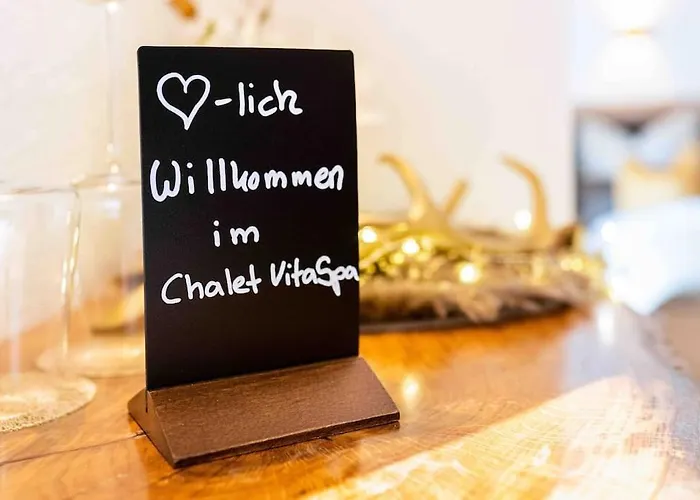 ♡-lich
Willkommen
im
Chalet VitaSpa